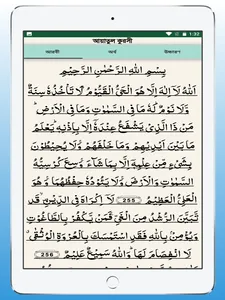 1:32
আয়াতুল কুরসী
আরবী অর্থ উচ্চারণ
بِسْمِ اللّٰهِ الرَّحْمٰنِ الرَّحِيْمِ
اَللّٰهُ لَآ اِلٰهَ اِلَّا هُوَ الْحَىُّ الْقَيُّوْمُ لَا تَاْخُذُهٗ سِنَةٌ
وَّلَا نَوْمٌ لَهٗ مَا فِى السَّمٰوٰتِ وَمَا فِى الْاَرْضِ
مَنْ ذَا الَّذِىْ يَشْفَعُ عِنْدَهٗٓ اِلَّا بِاِذْنِهٖ يَعْلَمُ
مَا بَيْنَ اَيْدِيْهِمْ وَمَا خَلْفَهُمْ وَلَا يُحِيْطُوْنَ
بِشَىْءٍ مِّنْ عِلْمِهٖٓ اِلَّا بِمَا شَآءَ وَسِعَ كُرْسِيُّهُ
السَّمٰوٰتِ وَالْاَرْضَ وَلَا يَئُوْدُهٗ حِفْظُهُمَا وَهُوَ
الْعَلِىُّ الْعَظِيْمُ 255 لَآ اِكْرَاهَ فِى الدِّيْنِ قَدْ
تَّبَيَّنَ الرُّشْدُ مِنَ الْغَىِّ فَمَنْ يَّكْفُرْ بِالطَّاغُوْتِ
وَيُؤْمِنْۢ بِاللّٰهِ فَقَدِ اسْتَمْسَكَ بِالْعُرْوَةِ الْوُثْقٰى
لَا انْفِصَامَ لَهَا وَاللّٰهُ سَمِيْعٌ عَلِيْمٌ 256